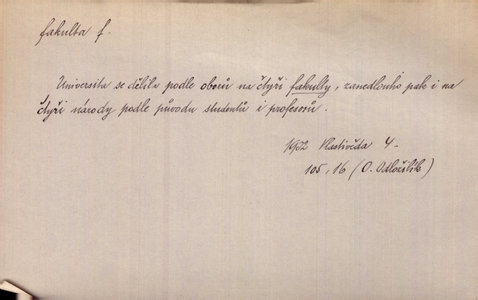 fakulta f.
Universita se dělila podle oborů na čtyři fakulty, zanedlouho pak i na
čtyři národy podle původu studentů i profesorů.
Vlastivěda 4-
105, 16 (O. Odložilík)